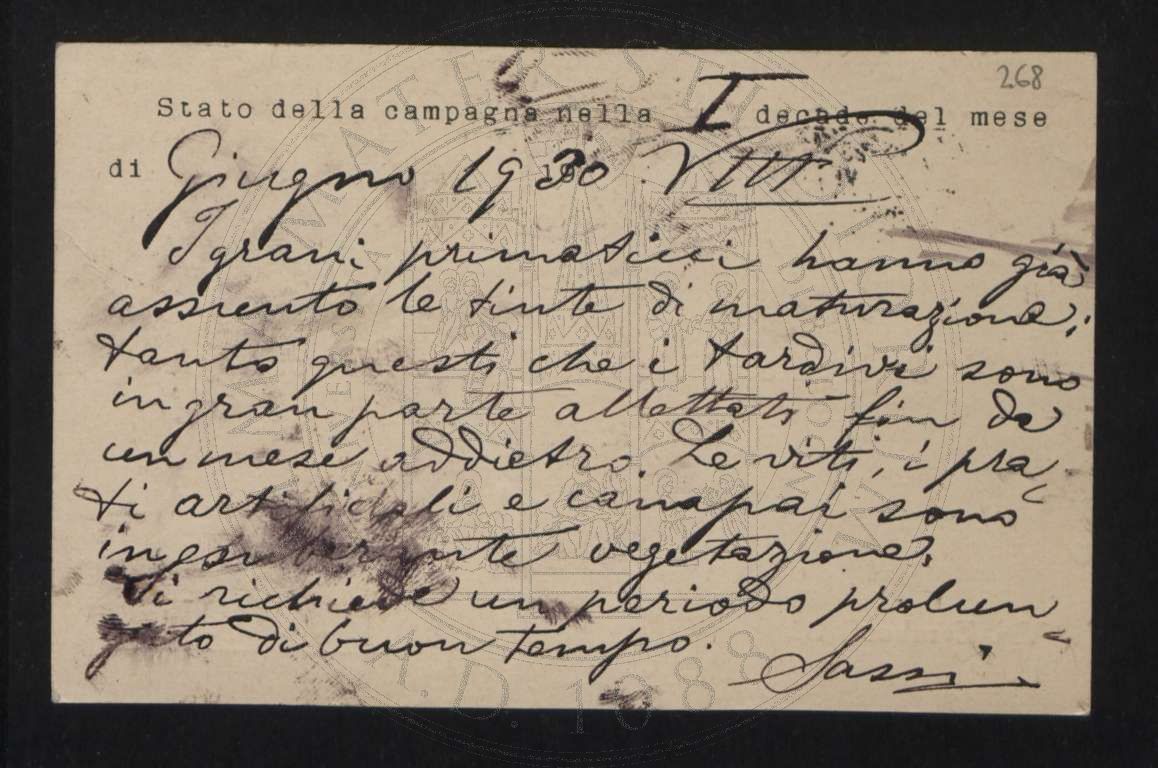 268
Stato della campagna nella I decade del mese
di Giugno 1930 VIII
I grani primaticci hanno già
assunto le tinte di maturazione;
tanto questi che i tardivi sono
in gran parte allettati fin da
un mese addietro. Le viti, i pra-
ti artificiali e canapai sono
in esuberante vegetazione.
Si richiede un periodo prolun-
gato di buon tempo.
Sassi